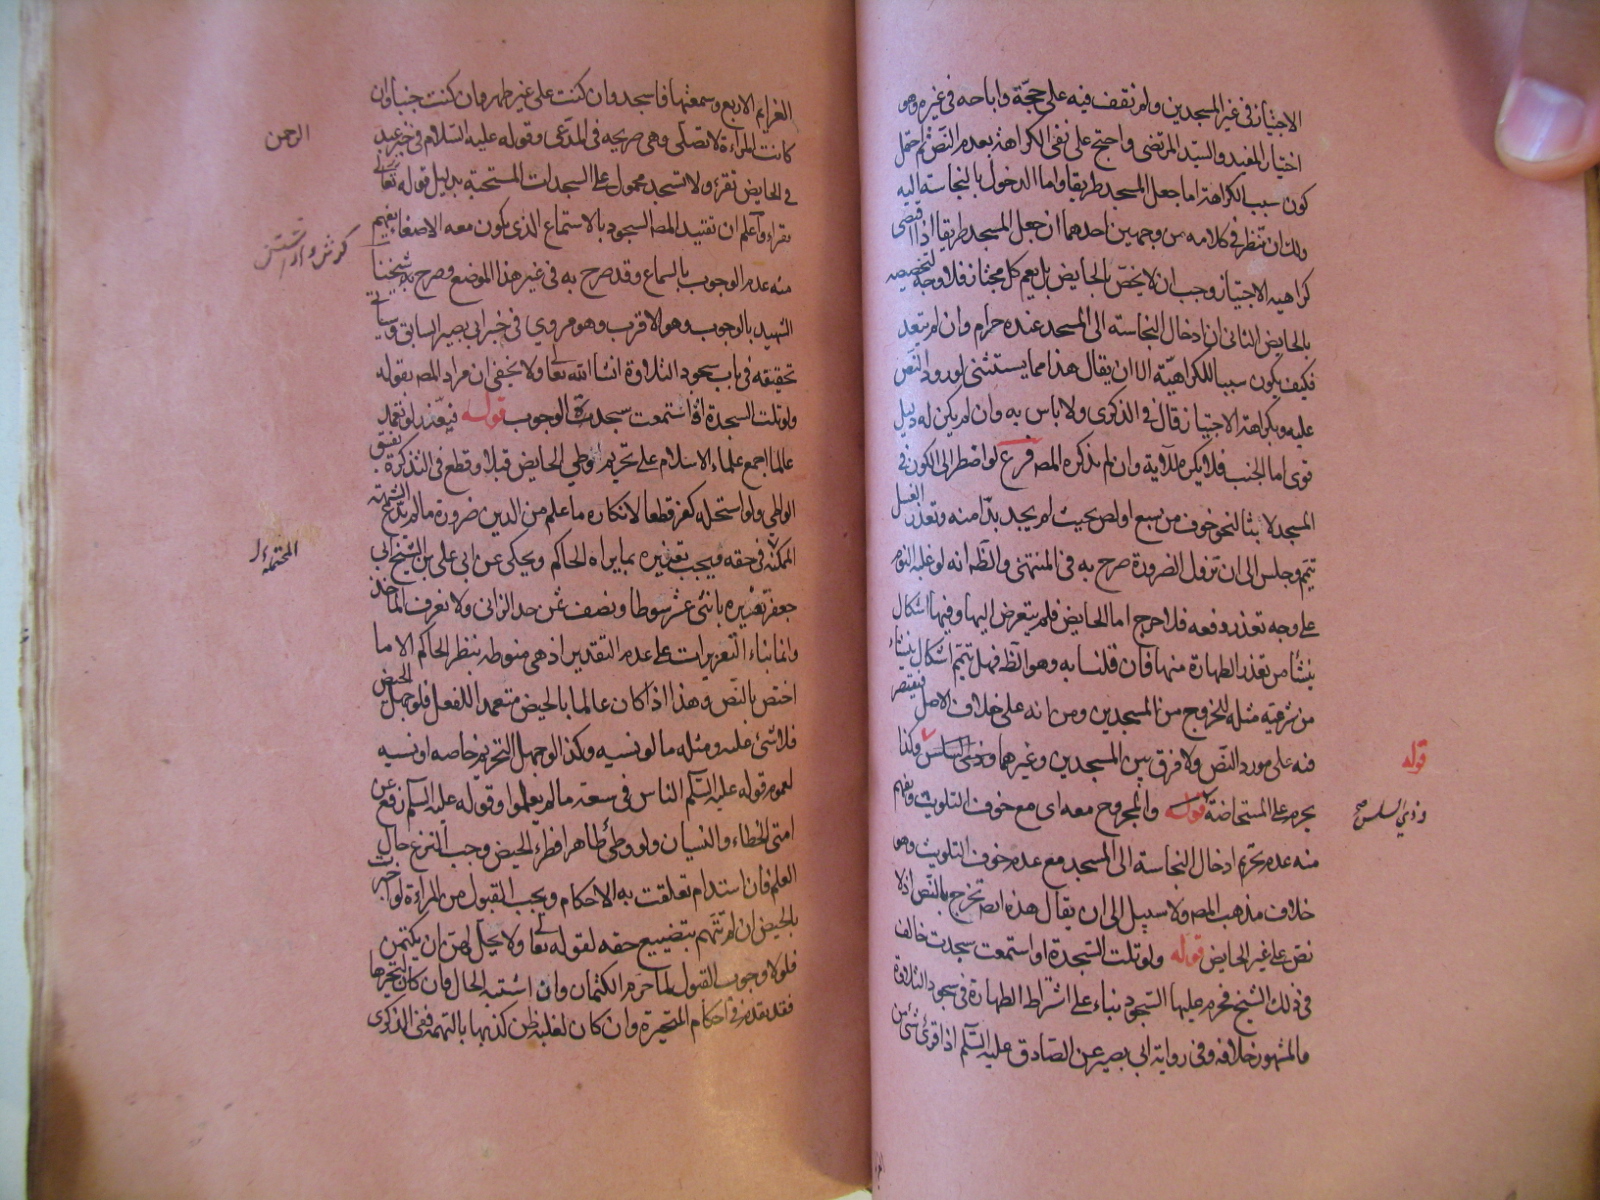 الاجتياز في غير المسجدين ولم نقف فيه على حجّة واباحه في غيره وهو
اختيار المفيد والسيّد المرتضى واحتج على نفى الكراهة بعدم النص ثم احتمل
كون سبب الكراهة اما جعل المسجد طريقا واما الدخول بالنجاسة اليه
ولك ان تنظر في كلامه من وجهين احدهما ان جعل المسجد طريقا اذا اقتضى
كراهية الاجتياز وجب ان لا يختصّ بالحايض بل يعم كل مجتاز فلا وجه لتخصيصه
بالحايض الثانى ان ادخال النجاسة الى المسجد عنده حرام وان لم يتعد
فكيف يكون سببا للكراهيّة الا ان يقال هذا مما يستثنى لورود النّص
عليه وبكراهة الاجتياز قال في الذكرى ولا باس به وان لم يكن له دليل
قوى اما الجنب فلا يكره للآية وان لم يذكره المصـ فرع لو اضطر الى الكون في
المسجد لابثا لنحو خوف من سبع او لص بحيث لم يجد بدّا منه وتعذر الغسل
تيمم وجلس الى ان تزول الضرورة صرح به في المنتهى والظّ انه لو غلبه النوم
على وجه تعذر دفعه فلا حرج اما الحايض فلم يتعرض اليها وفيها اشكال
ينشأ من تعذر الطهارة منها فان قلنا به وهو الظّ فهل تتيمّم اشكال ينشاء
من شرعيّة مثله للخروج من المسجدين ومن انه على خلاف الاصل فيقتصر
فيه على مورد النّص ولا فرق بين المسجدين وغيرهما وذى السلس وكذا
قوله
يحرم على المستحاضة قوله والمجروح معه اى مع خوف التلويث ويفهم
وذي السلس صح
منه عدم تحريم ادخال النجاسة الى المسجد مع عدم خوف التلويث وهو
خلاف مذهب المصـ ولا سبيل الى ان يقال هذه ايضـ تخرج بالنّص اذ لا
نصّ على غير الحايض قوله ولو تلت السّجدة او استمعت سجدت خالف
في ذلك الشيخ فحرم عليها السّجود بناء على اشتراط الطهارة في سجود التلاوة
والمشهور خلافه وفى رواية ابى بصير عن الصّادق عليه السّلم اذا قرئ شئ من
العزايم الاربع وسمعتها فاسجد وان كنت على غير طهر وان كنت جنبا وان
كانت المراءة لا تصلّى وهى صريحه في المدّعى وقوله عليه السّلام في خبر عبد
الرحمن
في الحايض تقرء ولا تسجد محمول على السجدات المستحبة بدليل قوله تعالى
تقراء وآعلم ان تقييد المصـ السجود بالاستماع الذى يكون معه الاصغا يفهم
منه عدم الوجوب بالسماع وقد صرح به في غير هذا الموضع وصرح به شيخنا
الشهيد بالوجوب وهو الاقرب وهو مروي في خبر ابى بصير السابق وياتى
تحقيقه في باب سجود التلاوة انشا الله تعا ولا يخفى ان مراد المصـ بقوله
ولو تلت السجدة او استمعت سجدت الوجوب قوله فيعزر لو تعمد
عالما اجمع علماء الاسلام على تحريم وطي الحايض قبلا وقطع في التذكرة بفسق
الواطي ولو استحله كفر قطعا لانكاره ما علم من الدين ضرورة ما لم يدّع الشبهة
الممكنة في حقه ويجب تعزيره بما يراه الحاكم ويحكى عن ابى على بن الشيخ ابى
المحتملة ل
جعفر تعزيره باثنى عشر سوطا ونصف ثمن حد الزانى ولا نعرف الماخذ
وانما بناء التعزيرات على عدم التقدير اذ هى منوطه بنظر الحاكم الا ما
اختص بالنّص وهذا اذا كان عالما بالحيض متعمد اللفعل فلو جهل الحيض
فلا شئ عليه ومثله ما لو نسيه وكذا لو جهل التحريم خاصه او نسيه
لعموم قوله عليه السّلم الناس في سعة ما لم يعلموا وقوله عليه السّلم رفع عن
امتى الخطاء والنسيان ولو وطئ طاهرا فطرء الحيض وجب النزع حال
العلم فان استدام تعلقت به الاحكام ويجب القبول من المراءة لو اخبرت
بالحيض ان لم تتهم بتضييع حقه لقوله تعا ولا يحل لهن ان يكتمن
فلولا وجوب القبول لما حرم الكتمان وان اشتبه الحال فان كان لتحيرها
فقد تقدم في احكام المتحيرة وان كان لغلبة ظن كذبها بالتهمة ففى الذكرى